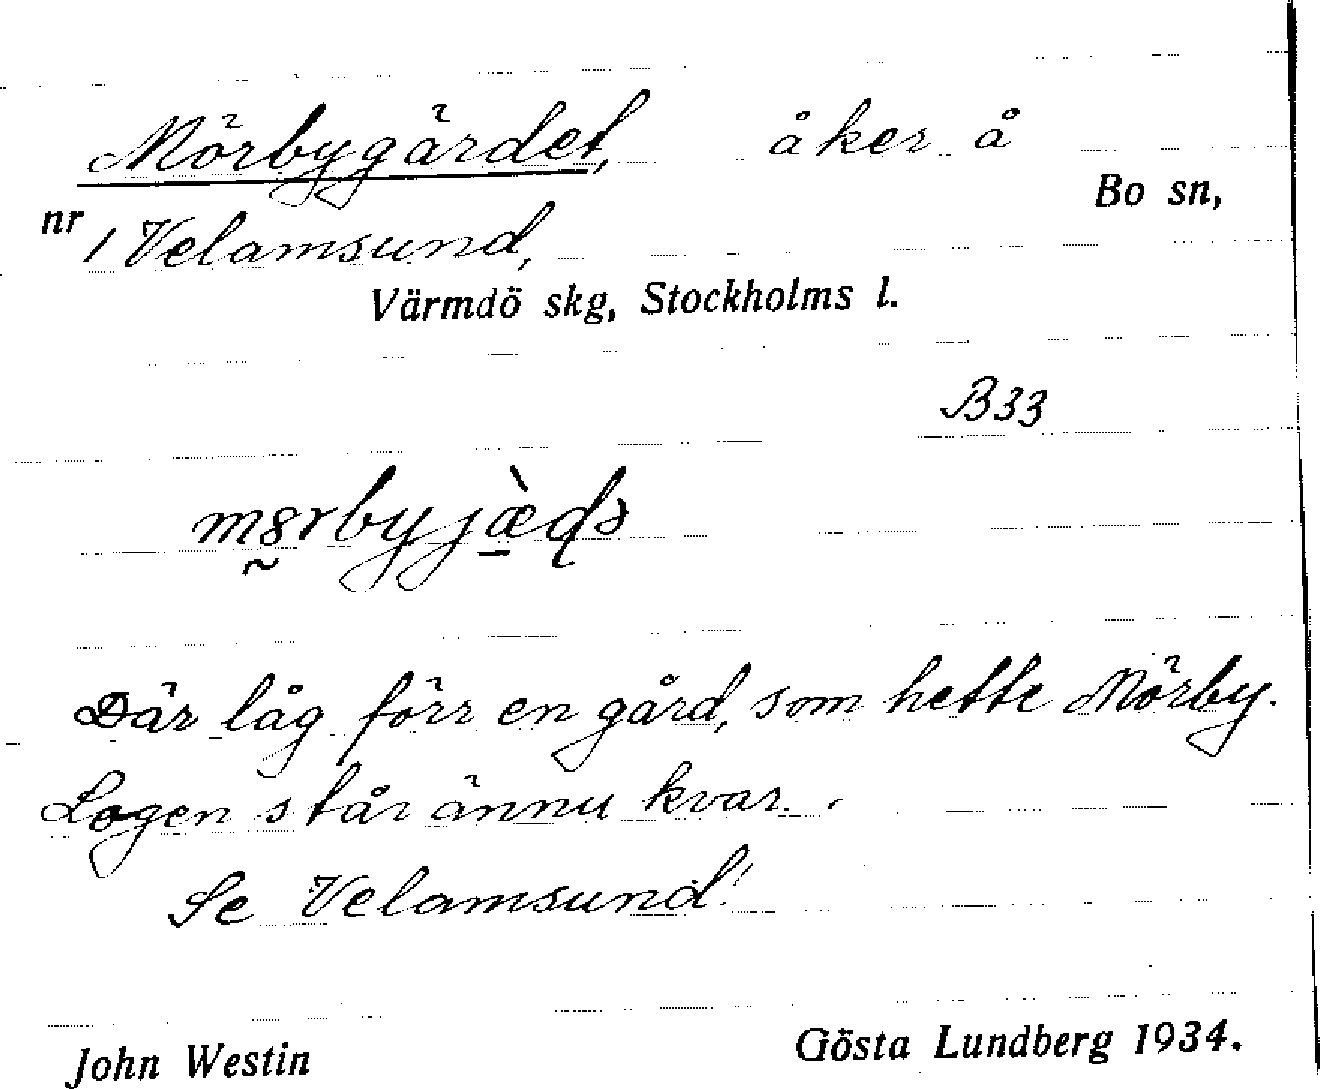 Mörbygärdet, åker å
Bo sn,
nr 1 Velamsund,
Värmdö skg, Stockholms l.
B33
Där låg förr en gård, som hette Mörby.
Logen står ännu kvar.
Se Velamsund!
John Westin Gösta Lundberg 1934.